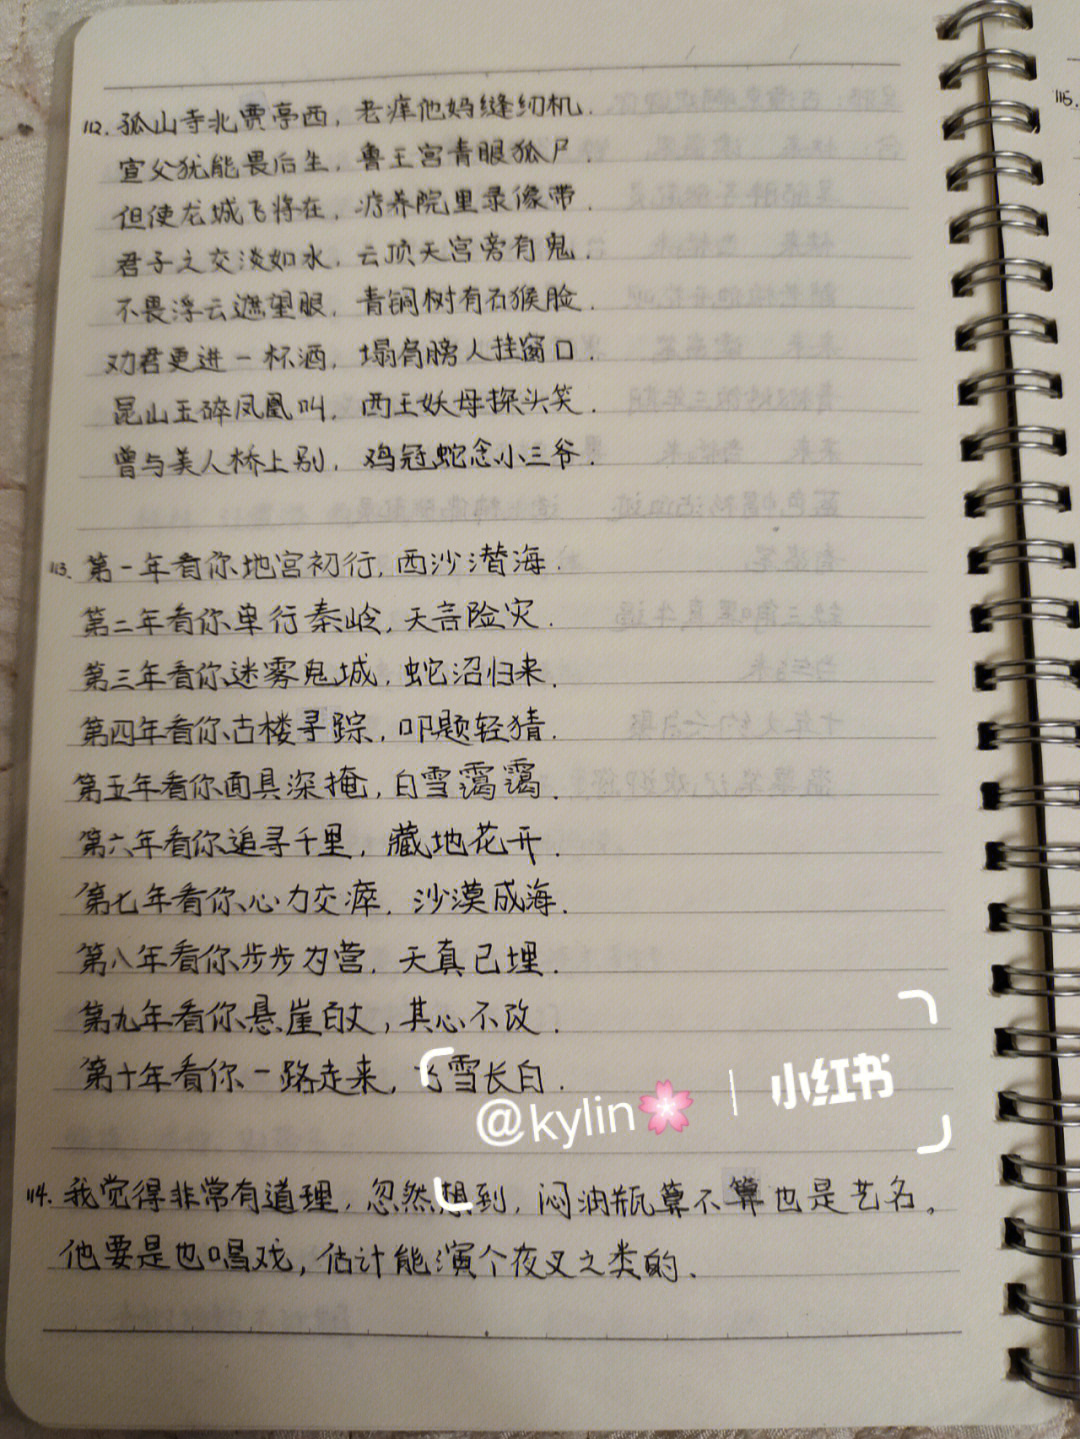 115.
112. 孤山寺北贾亭西，老痒他妈缝纫机.
宣父犹能畏后生，鲁王宫青眼狐尸.
但使龙城飞将在，疗养院里录像带.
君子之交淡如水，云顶天宫旁有鬼.
不畏浮云遮望眼，青铜树有石猴脸.
劝君更进一杯酒，塌肩膀人挂窗口.
昆山玉碎凤凰叫，西王妖母探头笑.
曾与美人桥上别，鸡冠蛇念小三爷.
113. 第一年看你地宫初行，西沙潜海.
第二年看你单行秦岭，天言险灾.
第三年看你迷雾鬼城，蛇沼归来.
第四年看你古楼寻踪，叩题轻猜.
第五年看你面具深掩，白雪霭霭.
第六年看你追寻千里，藏地花开.
第七年看你心力交瘁，沙漠成海.
第八年看你步步为营，天真已埋.
第九年看你悬崖百丈，其心不改.
第十年看你一路走来，飞雪长白.
@kylin🌸 | 小红书
114. 我觉得非常有道理，忽然想到，闷油瓶算不算也是艺名。
他要是也唱戏，估计能演个夜叉之类的.